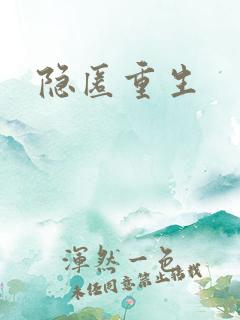 隐匿重生
渾然一色
未经同意禁止搭载